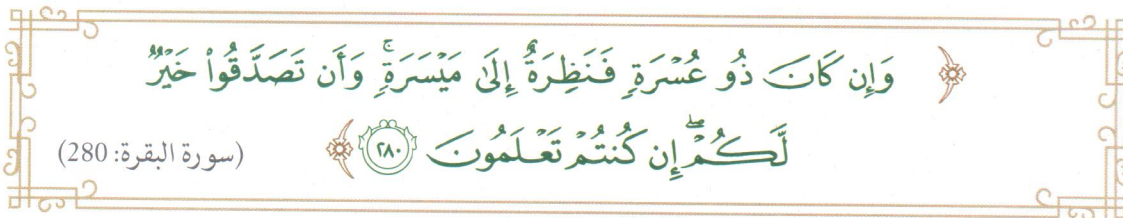 ﴿ وَإِن كَانَ ذُو عُسْرَةٍ فَنَظِرَةٌ إِلَىٰ مَيْسَرَةٍۚ وَأَن تَصَدَّقُواْ خَيْرٌ
لَّكُمْۖ إِن كُنتُمْ تَعْلَمُونَ ٢٨٠ ﴾ (سورة البقرة: 280)